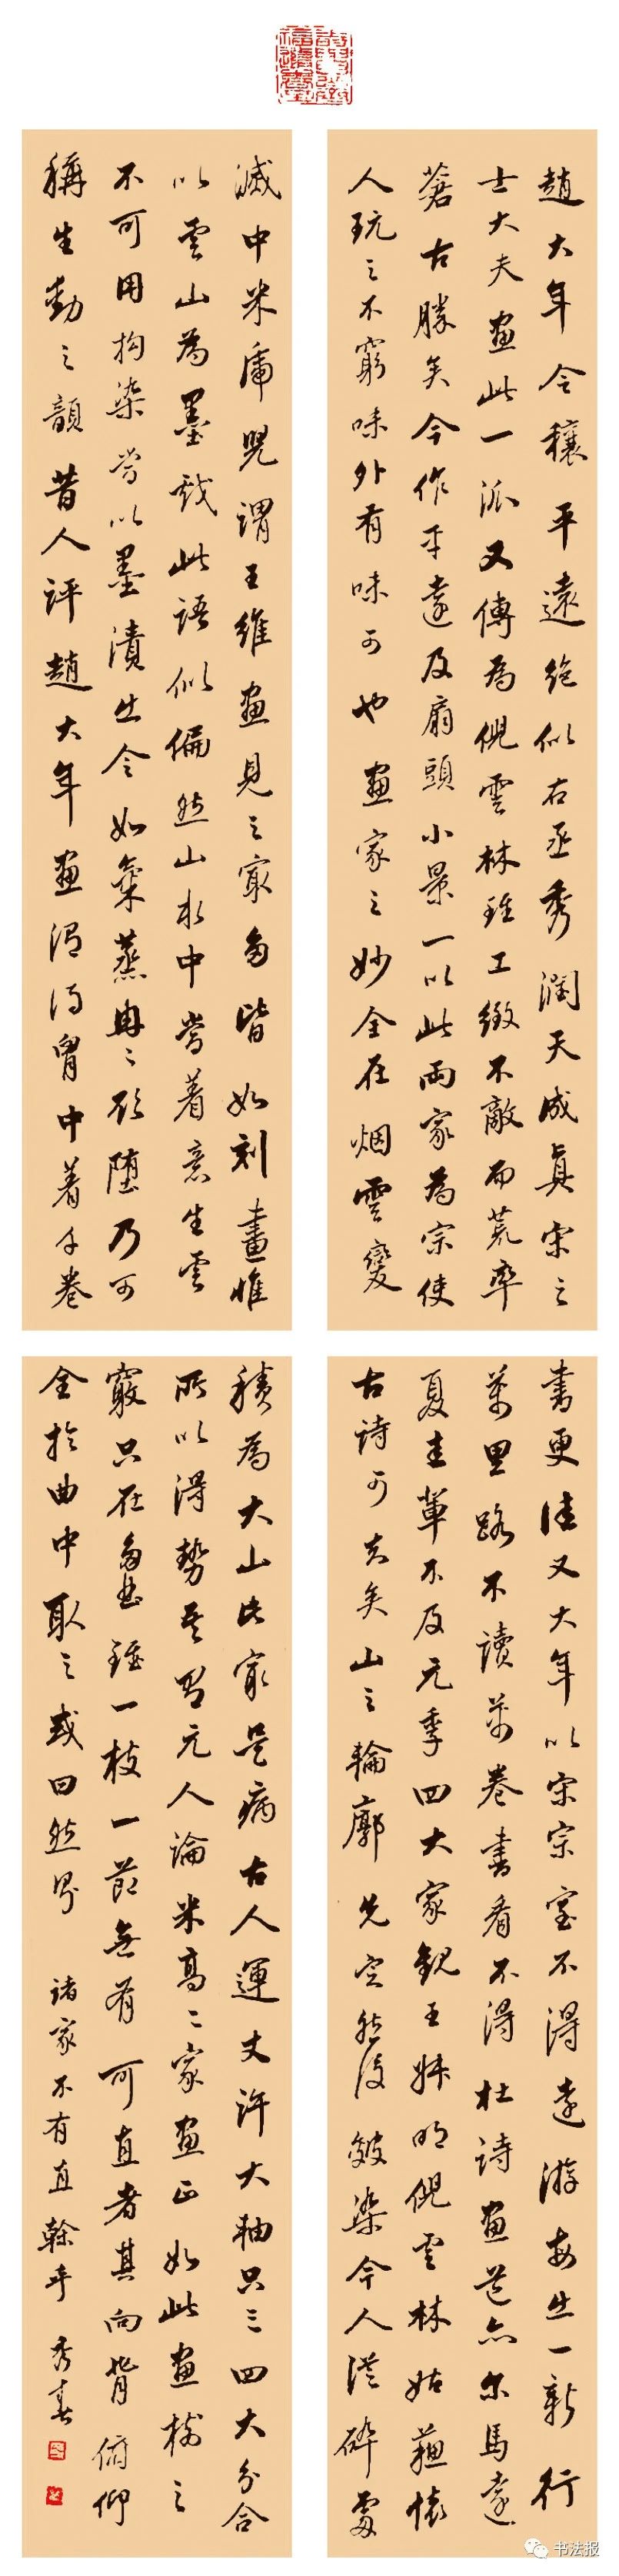 趙大年令穰平遠絕似右丞秀潤天成真宋之
士大夫畫此一派又傳為倪雲林雖工緻不敵而荒率
蒼古勝矣今作平遠及扇頭小景一以此兩家為宗使
人玩之不窮味外有味可也畫家之妙全在烟雲變
滅中米虎兒謂王維畫見之最多皆如刻畫惟
以雲山為墨戲此語似偏然山水中當着意生雲
不可用拘染當以墨漬出令如氣蒸冉〻欲墮乃可
稱生動之韻昔人評趙大年畫謂得胸中着千卷
書更佳又大年以宋宗室不得遠游每出一新行
萬里路不讀萬卷書看不得杜詩畫道亦尔馬遠
夏圭輩不及元季四大家觀王叔明倪雲林姑蘇懷
古詩可知矣山之輪廓先定然後皴染今人從碎處
積為大山此最是病古人運丈許大軸只三四大分合
所以得勢元人論米高二家畫正如此畫樹之
竅只在多曲雖一枝一節無有可直者其向背俯仰
全於曲中取之或曰然則諸家不有直榦乎 秀春
书法报